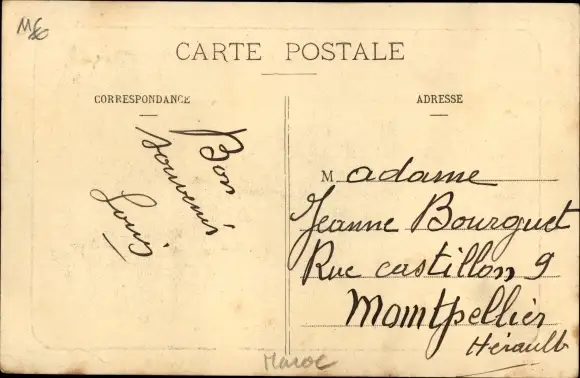 CARTE POSTALE
CORRESPONDANCE
Bon
souvenir
Louis
ADRESSE
Madame
Jeanne Bourguet
Rue castillon 9
Montpellier
Hérault
Maroc